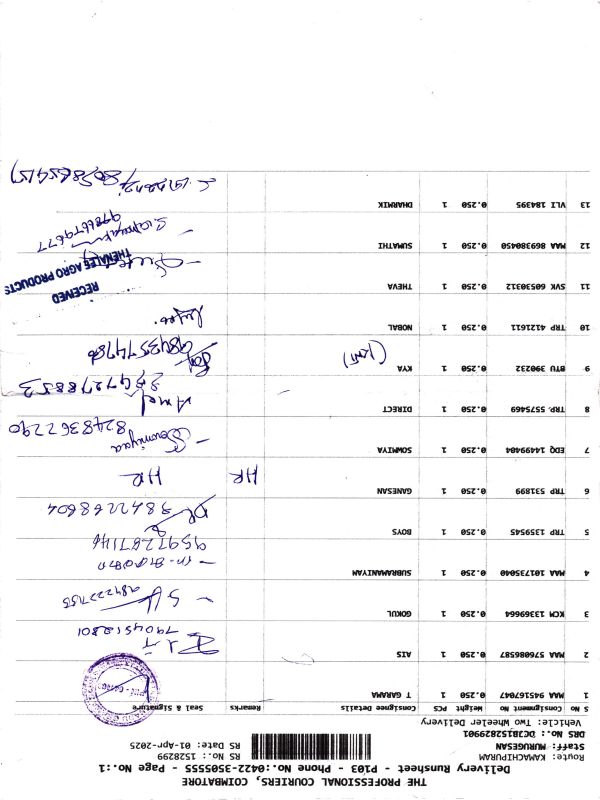 THE PROFESSIONAL COURIERS, COIMBATORE
Delivery Runsheet - P103 - Phone No.:0422-3505555 - Page No.:1
Route: KAMACHIPURAM
Staff: MURUGESAN
DRS No.: DCJBIS2829901
Vehicle: Two Wheeler Delivery
RS No: 1528299
RS Date: 01-Apr-2025
S No Consignment No Weight PCS Consignee Details Remarks Seal & Signature
1 MAA 945167047 0.250 1 T GARAMA
2 MAA 576086587 0.250 1 AIS
7904512801
3 KCM 13369664 0.250 1 GOKUL
9842227155
4 MAA 101735040 0.250 1 SUBRAMANIYAM
9597287146
5 TRP 1359545 0.250 1 BOYS
9842268604
6 TRP 531899 0.250 1 GANESAN HR HR
7 EDQ 14499404 0.250 1 SOWMIYA
Sowmiyaa
8248362290
8 TRP. 5575469 0.250 1 DIRECT
9 BTU 390232 0.250 1 KYA
9843574786
10 TRP 4121611 0.250 1 NOBAL
11 SVK 60530312 0.250 1 THEVA
RECEIVED
THENALEE AGRO PRODUCTS
12 MAA 869380450 0.250 1 SUMATHI
9786679677
13 VLI 184395 0.250 1 DHARNIK